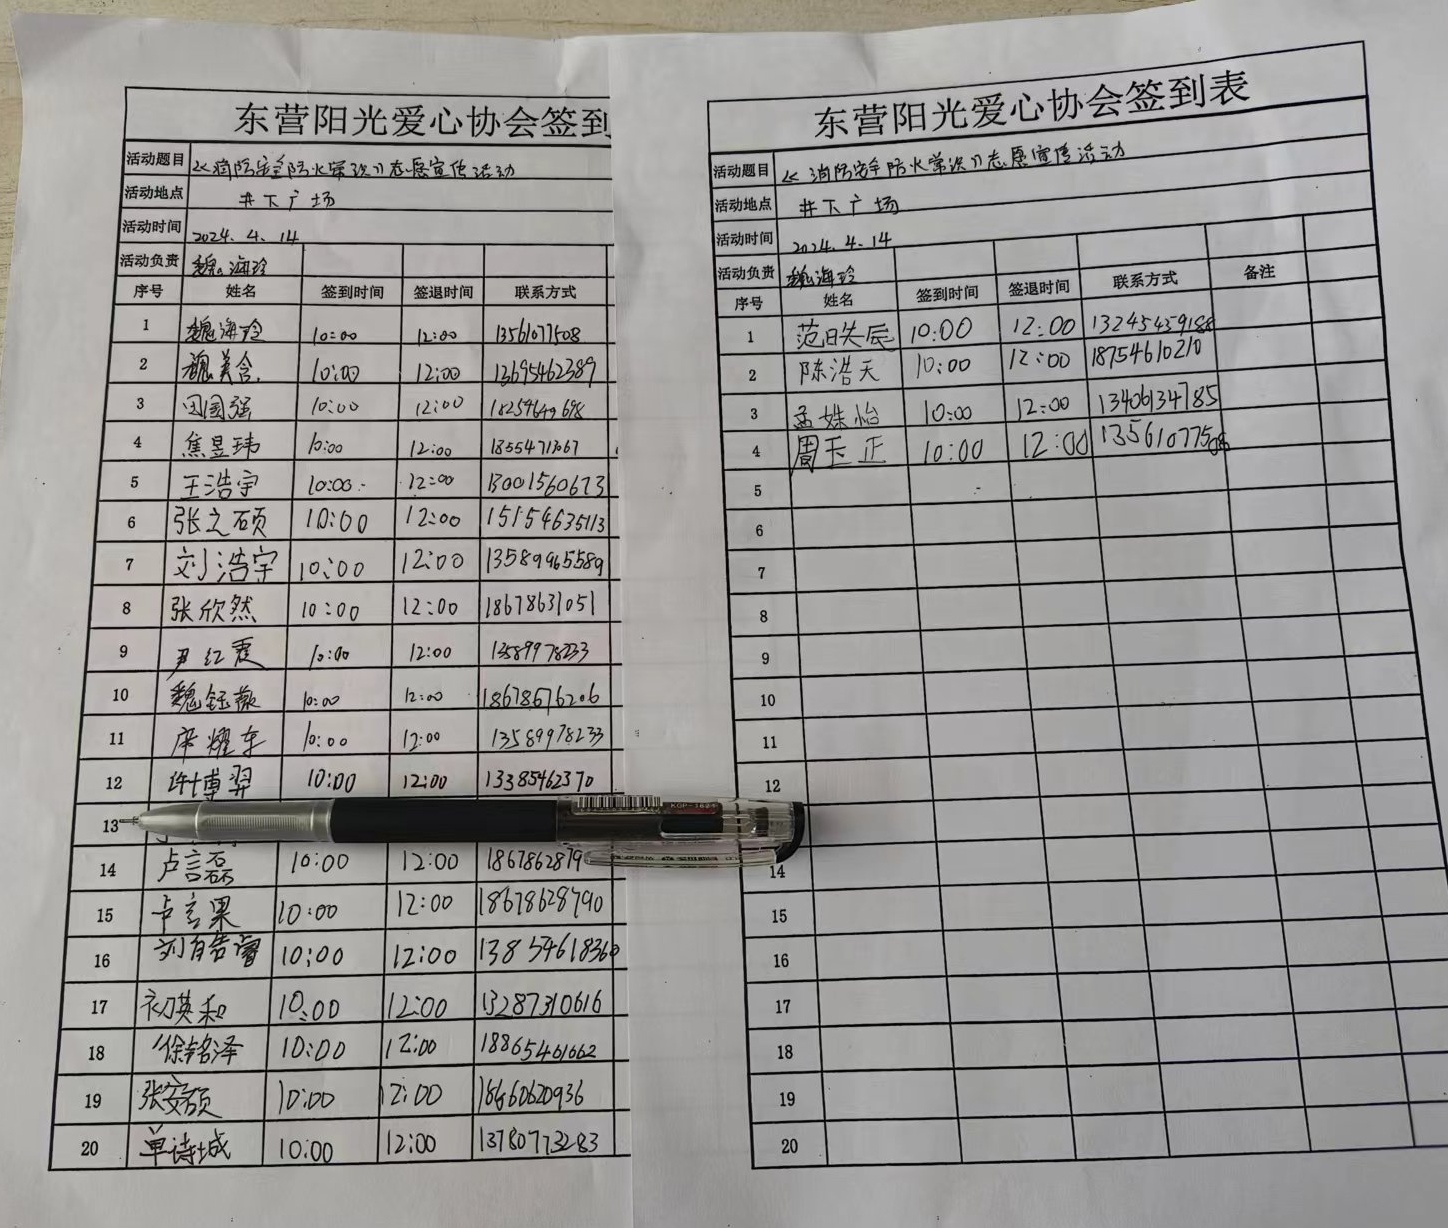 东营阳光爱心协会签到
活动题目 《消防安全防火常识》志愿宣传活动
活动地点 井下广场
活动时间 2024.4.14
活动负责 魏海玲
序号 姓名 签到时间 签退时间 联系方式
1 魏海玲 10:00 12:00 13561077508
2 魏美含 10:00 12:00 13695462389
3 田国强 10:00 12:00 18254649698
4 焦昱玮 10:00 12:00
5 王浩宇 10:00 12:00 13001560673
6 张之硕 10:00 12:00 15154635113
7 刘浩宇 10:00 12:00 13589965589
8 张欣然 10:00 12:00 18678631051
9 尹红霞 10:00 12:00 13589978233
10 魏钰薇 10:00 12:00 18678676206
11 席耀东 10:00 12:00 13589978233
12 许博羿 10:00 12:00 13385462370
13
14 卢言磊 10:00 12:00 1867862879
15 卢言果 10:00 12:00 18678628790
16 10:00 12:00 13854618360
17 初英和 10:00 12:00 13287310616
18 徐铭泽 10:00 12:00 18865461662
19 张安硕 10:00 12:00 18660620936
20 单诗城 10:00 12:00 13780773283
KGP-1824
东营阳光爱心协会签到表
活动题目 《消防安全防火常识》志愿宣传活动
活动地点 井下广场
活动时间 2024.4.14
活动负责 魏海玲
序号 姓名 签到时间 签退时间 联系方式 备注
1 范轶辰 10:00 12:00 13245459188
2 陈浩天 10:00 12:00 18754610210
3 孟姝怡 10:00 12:00 13406134785
4 周玉正 10:00 12:00 13561077508
5
6
7
8
9
10
11
12
14
15
16
17
18
19
20